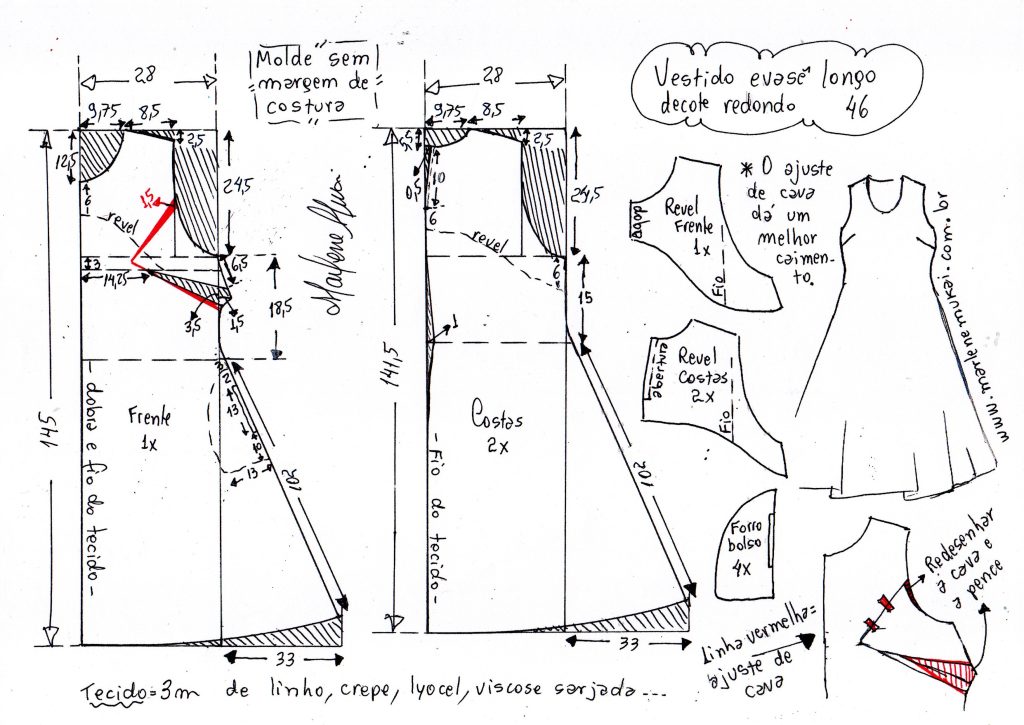 Molde sem
margem de
costura
Vestido evasê longo
decote redondo 46
28
9,75 8,5
2,5
12,5
24,5
6
1,5
revel
3
14,25
6,5
3,5
1,5
18,5
145
- dobra e fio do tecido -
Frente
1x
13
13
107
33
Marlene Mukai
28
9,75 8,5
0,5
10
6
24,5
revel
6
15
1
141,5
Costas
2x
- Fio do tecido -
107
33
dobra
Revel
Frente
1x
Fio
* O ajuste
de cava
dá um
melhor
caimen-
to.
abertura
Revel
Costas
2x
Fio
Forro
bolso
4x
www.marlenemukai.com.br
Redesenhar
a cava e
a pence
Linha vermelha=
ajuste de
cava
Tecido=3m de linho, crepe, lyocel, viscose sarjada...